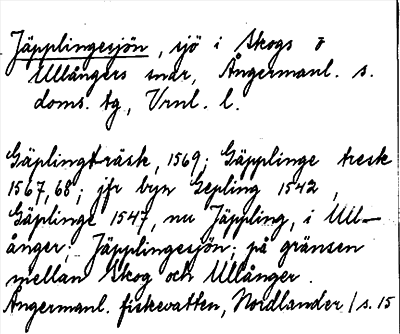 Jäpplingesjön, sjö i Skogs o
Ullångers sndr, Ångermanl. s.
doms. tg, Vrnl. l.
Gäplingträsk, 1569; Gäpplinge tresk
1567, 68; jfr byn Gepling 1542,
Gäplinge 1547, nu Jäppling, i Ull-
ånger; Jäpplingesjön; på gränsen
mellan Skog och Ullånger.
Ångermanl. fiskevatten, Nordlander / s. 15